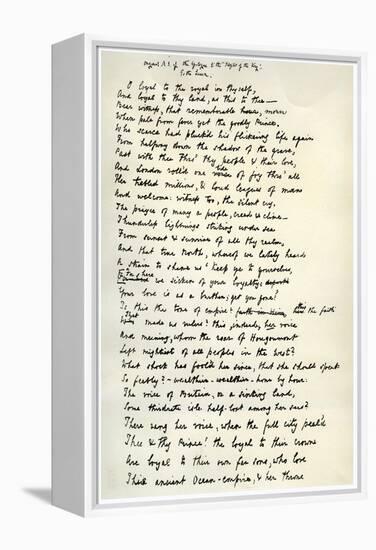 Original M.S. of the Epilogue to the "Idylls of the King".
To the Queen.
O loyal to the royal in thyself,
And loyal to thy land, as this to thee—
Bear witness, that rememberable hour, morn
When pale from fever yet the goodly Prince,
Who scarce had pluck'd his flickering life again
From halfway down the shadow of the grave,
Past with thee thro' thy people & their love,
And London roll'd one tide of joy thro' all
Her trebled millions, & loud leagues of man
And welcome: witness too, the silent cry,
The prayer of many a people, creed & clime—
Thunderless lightnings striking under sea
From sunset & sunrise of all thy realm,
And that true North, whereof we lately heard
A strain to shame us 'keep ye to yourselves,
So loyal is too costly! friends, your
we sicken of your loyalty,
Your love is as a burthen: get you gone!'
Is this the tone of empire? here the faith
That made us rulers? this indeed, her voice
And meaning, whom the roar of Hougoumont
Left mightiest of all peoples in the west?
What shock has fool'd her since, that she should speak
So feebly? — wealthier — wealthier — hour by hour.
The voice of Britain, or a sinking land,
Some thirdrate isle half-lost among her seas?
There rang her voice, when the full city peal'd
Thee & thy Prince! the loyal to their crown
Are loyal to their own far sons, who love
ancient Ocean-empire, & her throne